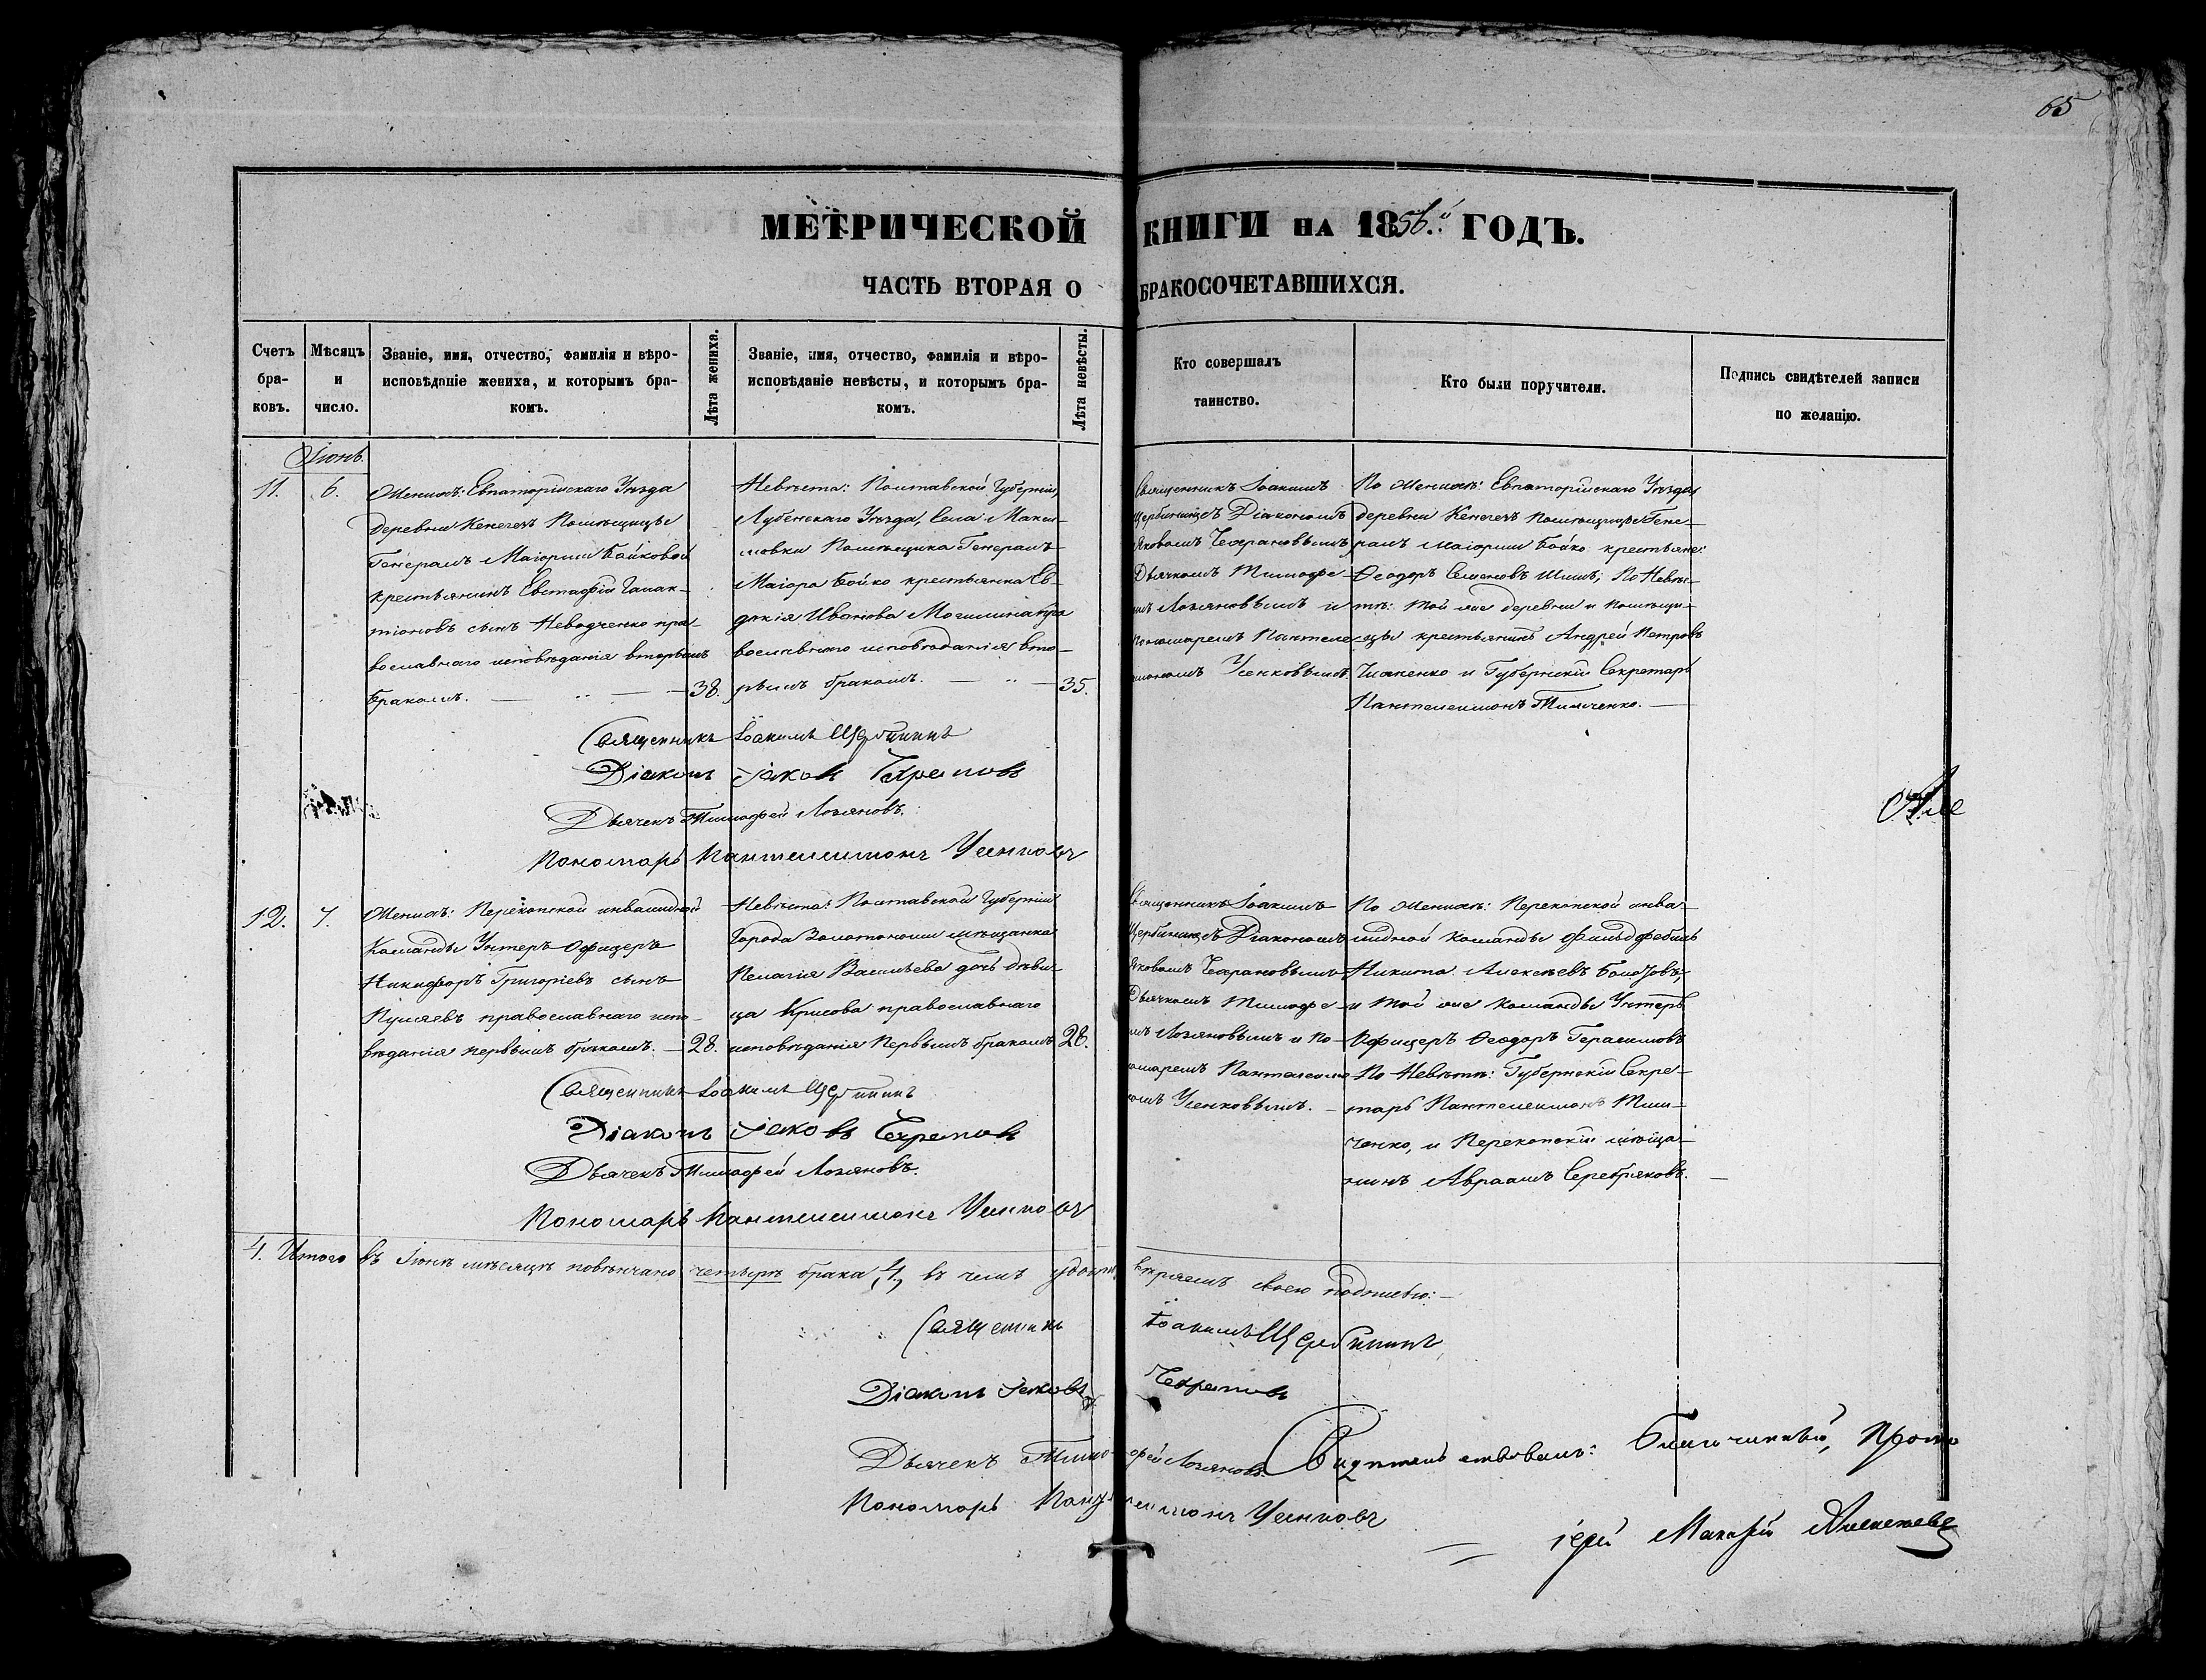 65
МЕТРИЧЕСКОЙ КНИГИ НА 1856.й ГОДЪ.
ЧАСТЬ ВТОРАЯ О БРАКОСОЧЕТАВШИХСЯ.
Счетъ бра-
ковъ.
Мѣсяцъ
и
число.
Званіе, имя, отчество, фамилія и вѣро-
исповѣданіе жениха, и которымъ бра-
комъ.
Лѣта жениха.
Званіе, имя, отчество, фамилія и вѣро-
исповѣданіе невѣсты, и которымъ бра-
комъ.
Лѣта невѣсты.
Кто совершалъ
таинство.
Кто были поручители.
Подпись свидѣтелей записи
по желанію.
Іюнь.
11.
6.
Женихъ: Евпаторійскаго Уѣзда
деревни Кенегезъ Помѣщицы
Генералъ Маіорши Бойковой
крестьянинъ Евстафій Галак-
тіоновъ сынъ Неводченко пра-
вославнаго исповѣданія вторымъ
бракомъ.
38.
Невѣста: Полтавской Губерніи,
Лубенскаго Уѣзда, Села Макси-
мовки Помѣщика Генералъ-
Маіора Бойко крестьянка Ев-
докія Иванова Могилина пра
вославнаго исповѣданія вто-
рымъ бракомъ.
35.
Священникъ Іоакимъ
Щербининъ съ Діакономъ
Яковомъ Чехрановымъ
Дьячкомъ Тимофе-
емъ Лозяновымъ и
пономаремъ Пантеле-
имономъ Усенковымъ.
По Женихѣ: Евпаторійскаго Уѣзда,
деревни Кенегезъ помѣщицы Гене-
ралъ маіорши Бойко крестьяне:
Ѳеодоръ Семеновъ Шишъ; По Невѣ-
стѣ: той же деревни и помѣщи-
цы крестьянинъ Андрей Петровъ
и Губернскій Секретарь
Пантелеимонъ Тимченко.
Священникъ Іоакимъ Щербининъ
Діаконъ Іаковъ Чехрановъ
Дьячекъ Тимофей Лозяновъ.
Пономарь Пантелеимонъ Усенковъ
12.
7.
Женихъ: Перекопской инвалидной
Команды Унтеръ-Офицеръ
Никифоръ Григоріевъ сынъ
Пуляевъ православнаго испо-
вѣданія первымъ бракомъ.
28.
Невѣста: Полтавской Губерніи
Города Золотоноши мѣщанка
Пелагія Васильева дочь дѣви-
ца Крисова православнаго
исповѣданія Первымъ бракомъ
28.
Священникъ Іоакимъ
Щербининъ съ Діакономъ
Яковомъ Чехрановымъ
Дьячкомъ Тимофе-
емъ Лозяновымъ и По-
номаремъ Пантелеимо-
номъ Усенковымъ.
По Женихѣ: Перекопской инва-
лидной команды Фельдфебель
Никита Алексѣевъ Болотовъ,
и той же команды Унтеръ
Офицеръ Ѳеодоръ Герасимовъ
По Невѣстѣ: Губернскій Секре-
тарь Пантелеимонъ Тим-
ченко, и Перекопскій мѣща-
нинъ Авраамъ Серебряковъ.
Священникъ Іоакимъ Щербининъ
Діаконъ Іаковъ Чехрановъ
Дьячекъ Тимофей Лозяновъ.
Пономарь Пантелеимонъ Усенковъ
4. Итого въ Іюнѣ мѣсяцѣ повѣнчано четыре брака 4, въ чемъ удостовѣряемъ своею подписью:
Священникъ Іоакимъ Щербининъ
Діаконъ Іаковъ Чехрановъ
Дьячекъ Тимофей Лозяновъ.
Пономарь Пантелеимонъ Усенковъ
Свидѣтельствовалъ: Благочинный, Прото
іерей Макарій Алексѣевъ